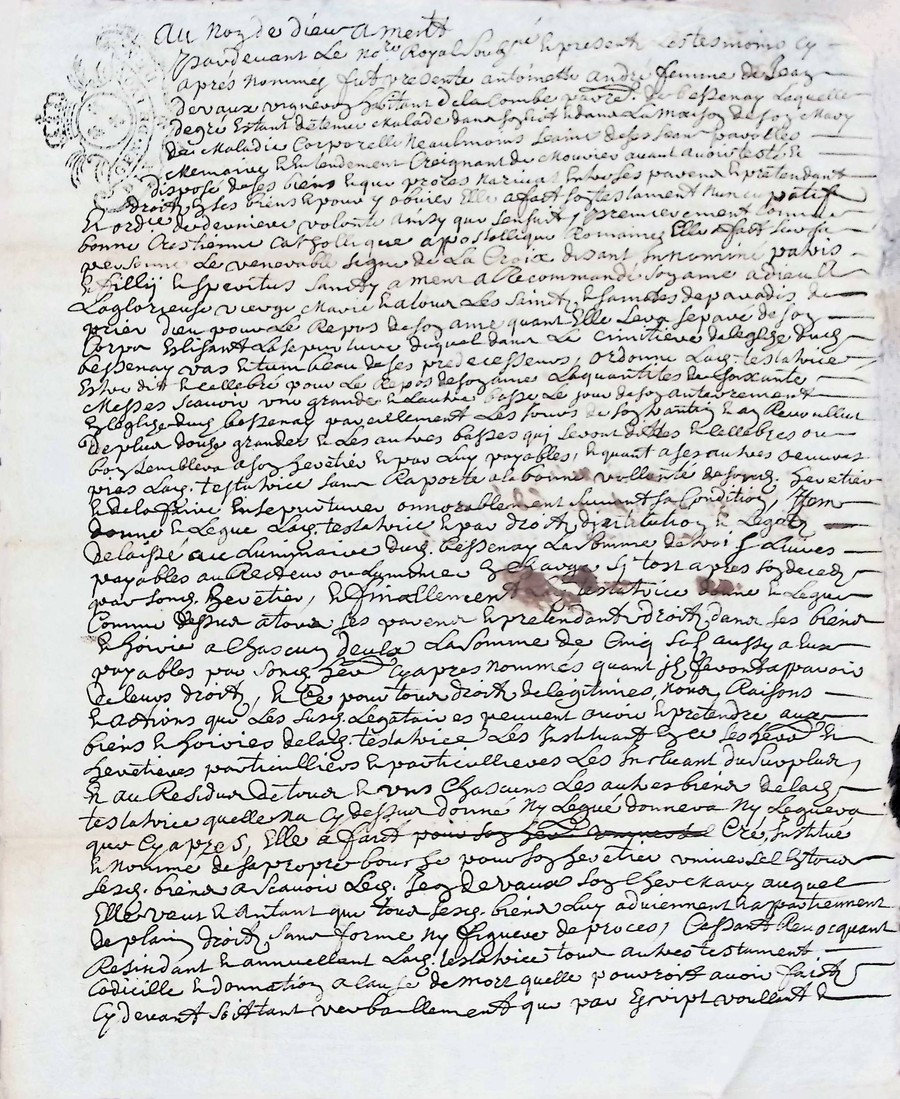 Au Nog de dieu a ment
Pardevant Le Nore Royal Soubsné & present Les tesmoins Cy
aprés Nommes fut presente antoinette andré femme de Jean
devaux vigneron habitant de la Combe parre. de bessenay Laquelle
degré Estant detenue Malade dans son lict & dans La maison de son Mary
de Maladie Corporelle Neaulmoins Seaine de ses sens parolles
Memoire & Entendement Creignant de Mourier avant avoir testé &
dispose de ses biens & que proces Narivat Entre ses parens & pretendant
droit En ses biens & pour y obvier Elle a fait son testament Nuncupatif
& ordre de derniere volonté ainsy que sensuit, premierement Comme
bonne Crestienne Catholique apostollique Romaine, Elle a fait sur sa
personne Le venerable signe de La Croix disant In nominé patris
& fillij & speritus Sancty amen a Recommandé son ame a dieu A
La glorieuse vierge Marie & a tous Les Saints & saintes de paradis de
prier dieu pour Le Repos de son ame quant Elle sera separe de son
Corps Elisant La sepurture duquel dans Le cimitiere de leglise dudt
bessenay vas & tumbeau de ses predecesseurs, ordonne Lad. testatrice
Estre dit & cellebre pour Le Repos de son ame La quantites de soixante
Messes Scavoir une grande & Lautre basse Le jour de son anterrement
En leglise dud bessenay pareillement Les jours de sa quarantin & an Revoullut
De plus douze grandes & Les autres basses qui seront dittes & cellebres ou
bon semblera a son heretier & par Luy payables, & quant a ses autres oeuvres
pies Lad. testatrice sans Raporte a la bonne vollenté de sond. heretier
& de La faire Ensepurturer onnorablement suivant sa Condition, Item
donne & Legue Lad. testatrice & par droit dinstitution & Legat
delaissé au Luminaire dud. bessenay La somme de trois Livres
payables au Recteur ou Lumenier En Charge sy tost apres son deces
par sond. heretier, & finallement Lad. testatrice donne & Legue
Comme dessus a tous ses parens & pretendant droit dans ses biens
& hoirie a Chascun deulx La somme de Cinq sols aussy a Eux
payables par sond. herer Cy apres nommés quant ils feront apparoir
de leurs droits, & Ce pour tous droits de legitimes, noms Raisons
& actions que Les susd. Legataires peuvent avoir & pretendre aux
biens & hoiries de lad. testatrice Les Instituant En Ce ses herers &
heretieres particulliers & particullieres Les Incluant du surplus,
Et au Residus de tous & uns Chascuns Les autres biens de lad.
testatrice quelle Na Cy dessus donné Ny Legué donnera Ny Leguera
que Cy apres, Elle a faict pour son herer universel Créé, Institué
& Nommé de sa propre bouche pour son heretier universel En tous
sesd. biens a Scavoir Led. Jean devaux son Cher Mary auquel
Elle veut & Antant que tous sesd. biens Luy adviennent & appartiennent
de plain droit, sans forme Ny figure de proces, Cassant Revocquant
Resindant & annuellant Lad. testatrice tous autres testament
Codicille & donnation a Cause de mort quelle pourroit avoir faict
Cy devant soit tant verballement que par Escript voullent &